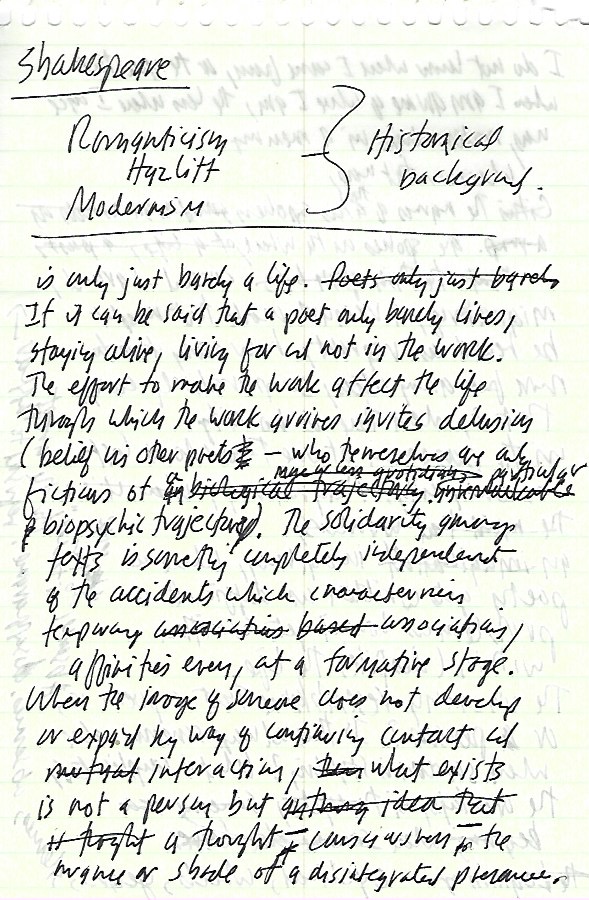 Shakespeare
Romanticism
Hazlitt
Modernism
Historical
background.
is only just barely a life. Poets only just barely
If it can be said that a poet only barely lives,
staying alive, living for and not in the work.
The effort to make the work affect the life
through which the work arrives invites delusion
(belief in other poets – who themselves are only
more or less quotidian particular
fictions of a biological trajectory.
biopsychic trajectory). The solidarity among
texts is something completely independent
of the accidents which characterizes
temporary associations based associations,
affinities even, at a formative stage.
When the image of someone does not develop
or expand by way of continuing contact and
mutual interaction, then what exists
is not a person but idea that
it thought a thought – consciousness – the
nuance or shade of a disintegrated presence.